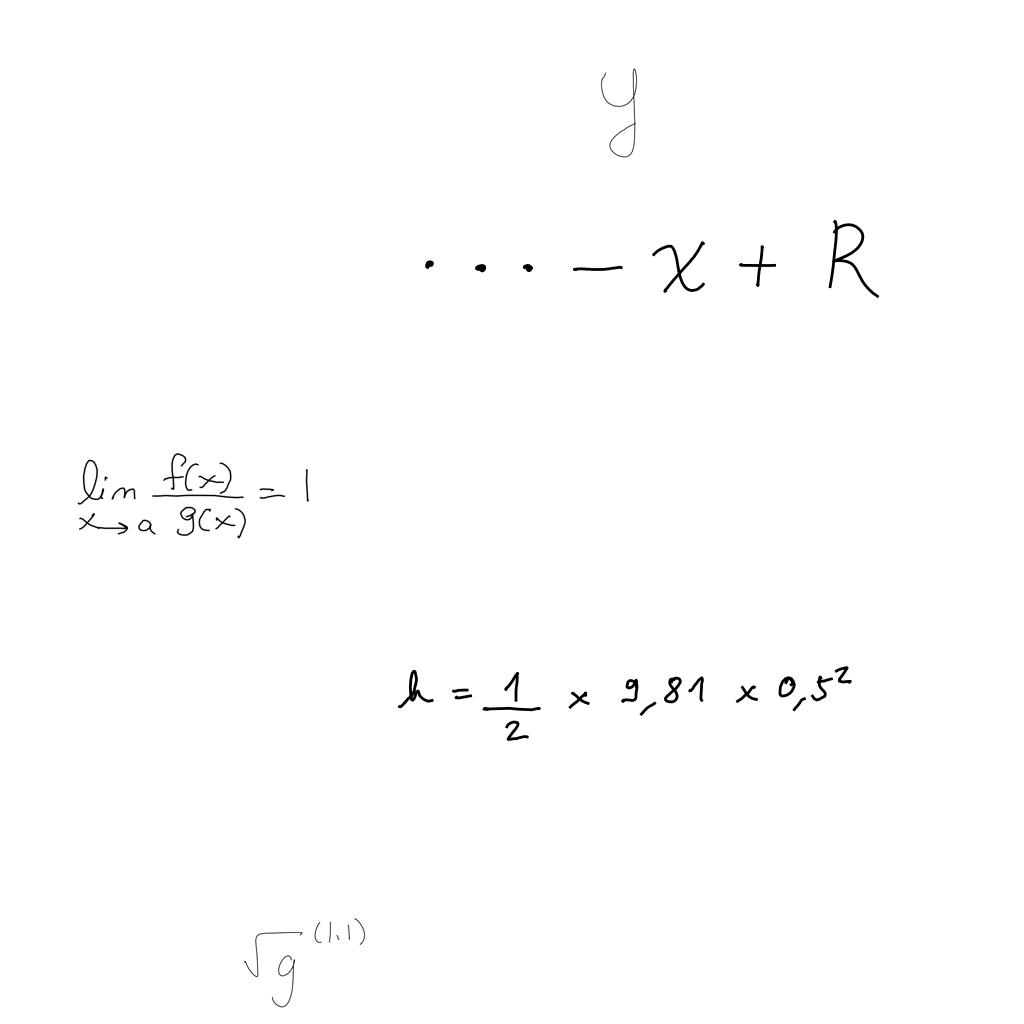 y
... - x + R
lim_{x→a} \frac{f(x)}{g(x)} = 1
h = \frac{1}{2} × 9,81 × 0,5^2
\sqrt{g}^{(1,1)}